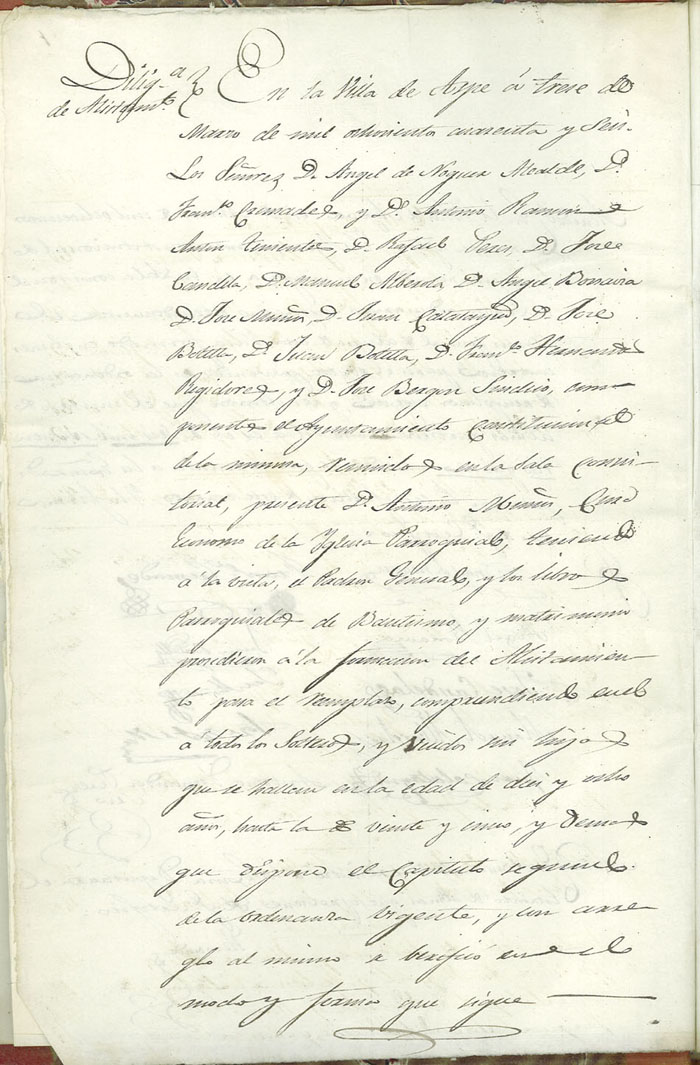 Dilig.ª
de Alistam.to
En la Villa de Aspe á trese de
Marzo de mil ochocientos cuarenta y Seis
Los Señores D. Angel de Noguera Alcalde, D.
Fran.co Cremades, y D. Antonio Ramon de
Antón tenientes, D. Rafael Perez, D. Jose
Candela, D. Manuel Alberola D. Angel Bonaira
D. Jose Muñoz, D. Juan Calatayud, D. Jose
Botella, D. Juan Botella, D. Fran.co Hernandez
Regidores, y D. Jose Sindico, com-
ponentes el Ayuntamiento Constitucional
de la misma, reunidos en la Sala consis-
torial, presente D. Antonio Muñoz, Cura
Economo de la Yglesia Parroquial, teniendo
á la vista, el Padron General, y los libros
Parroquiales de Bautismo, y matrimonio
procedieron á la formacion del Alistamien-
to para el remplazo, comprendiendo en el
a todos los Solteros, y Viudos sin hijos
que se hallan en la edad de diez y ocho
años, hasta la de veinte y cinco, y demas
que dispone el Capitulo segundo
de la ordenanza vigente, y con arre-
glo al mismo se berificó en el
modo y forma que sigue